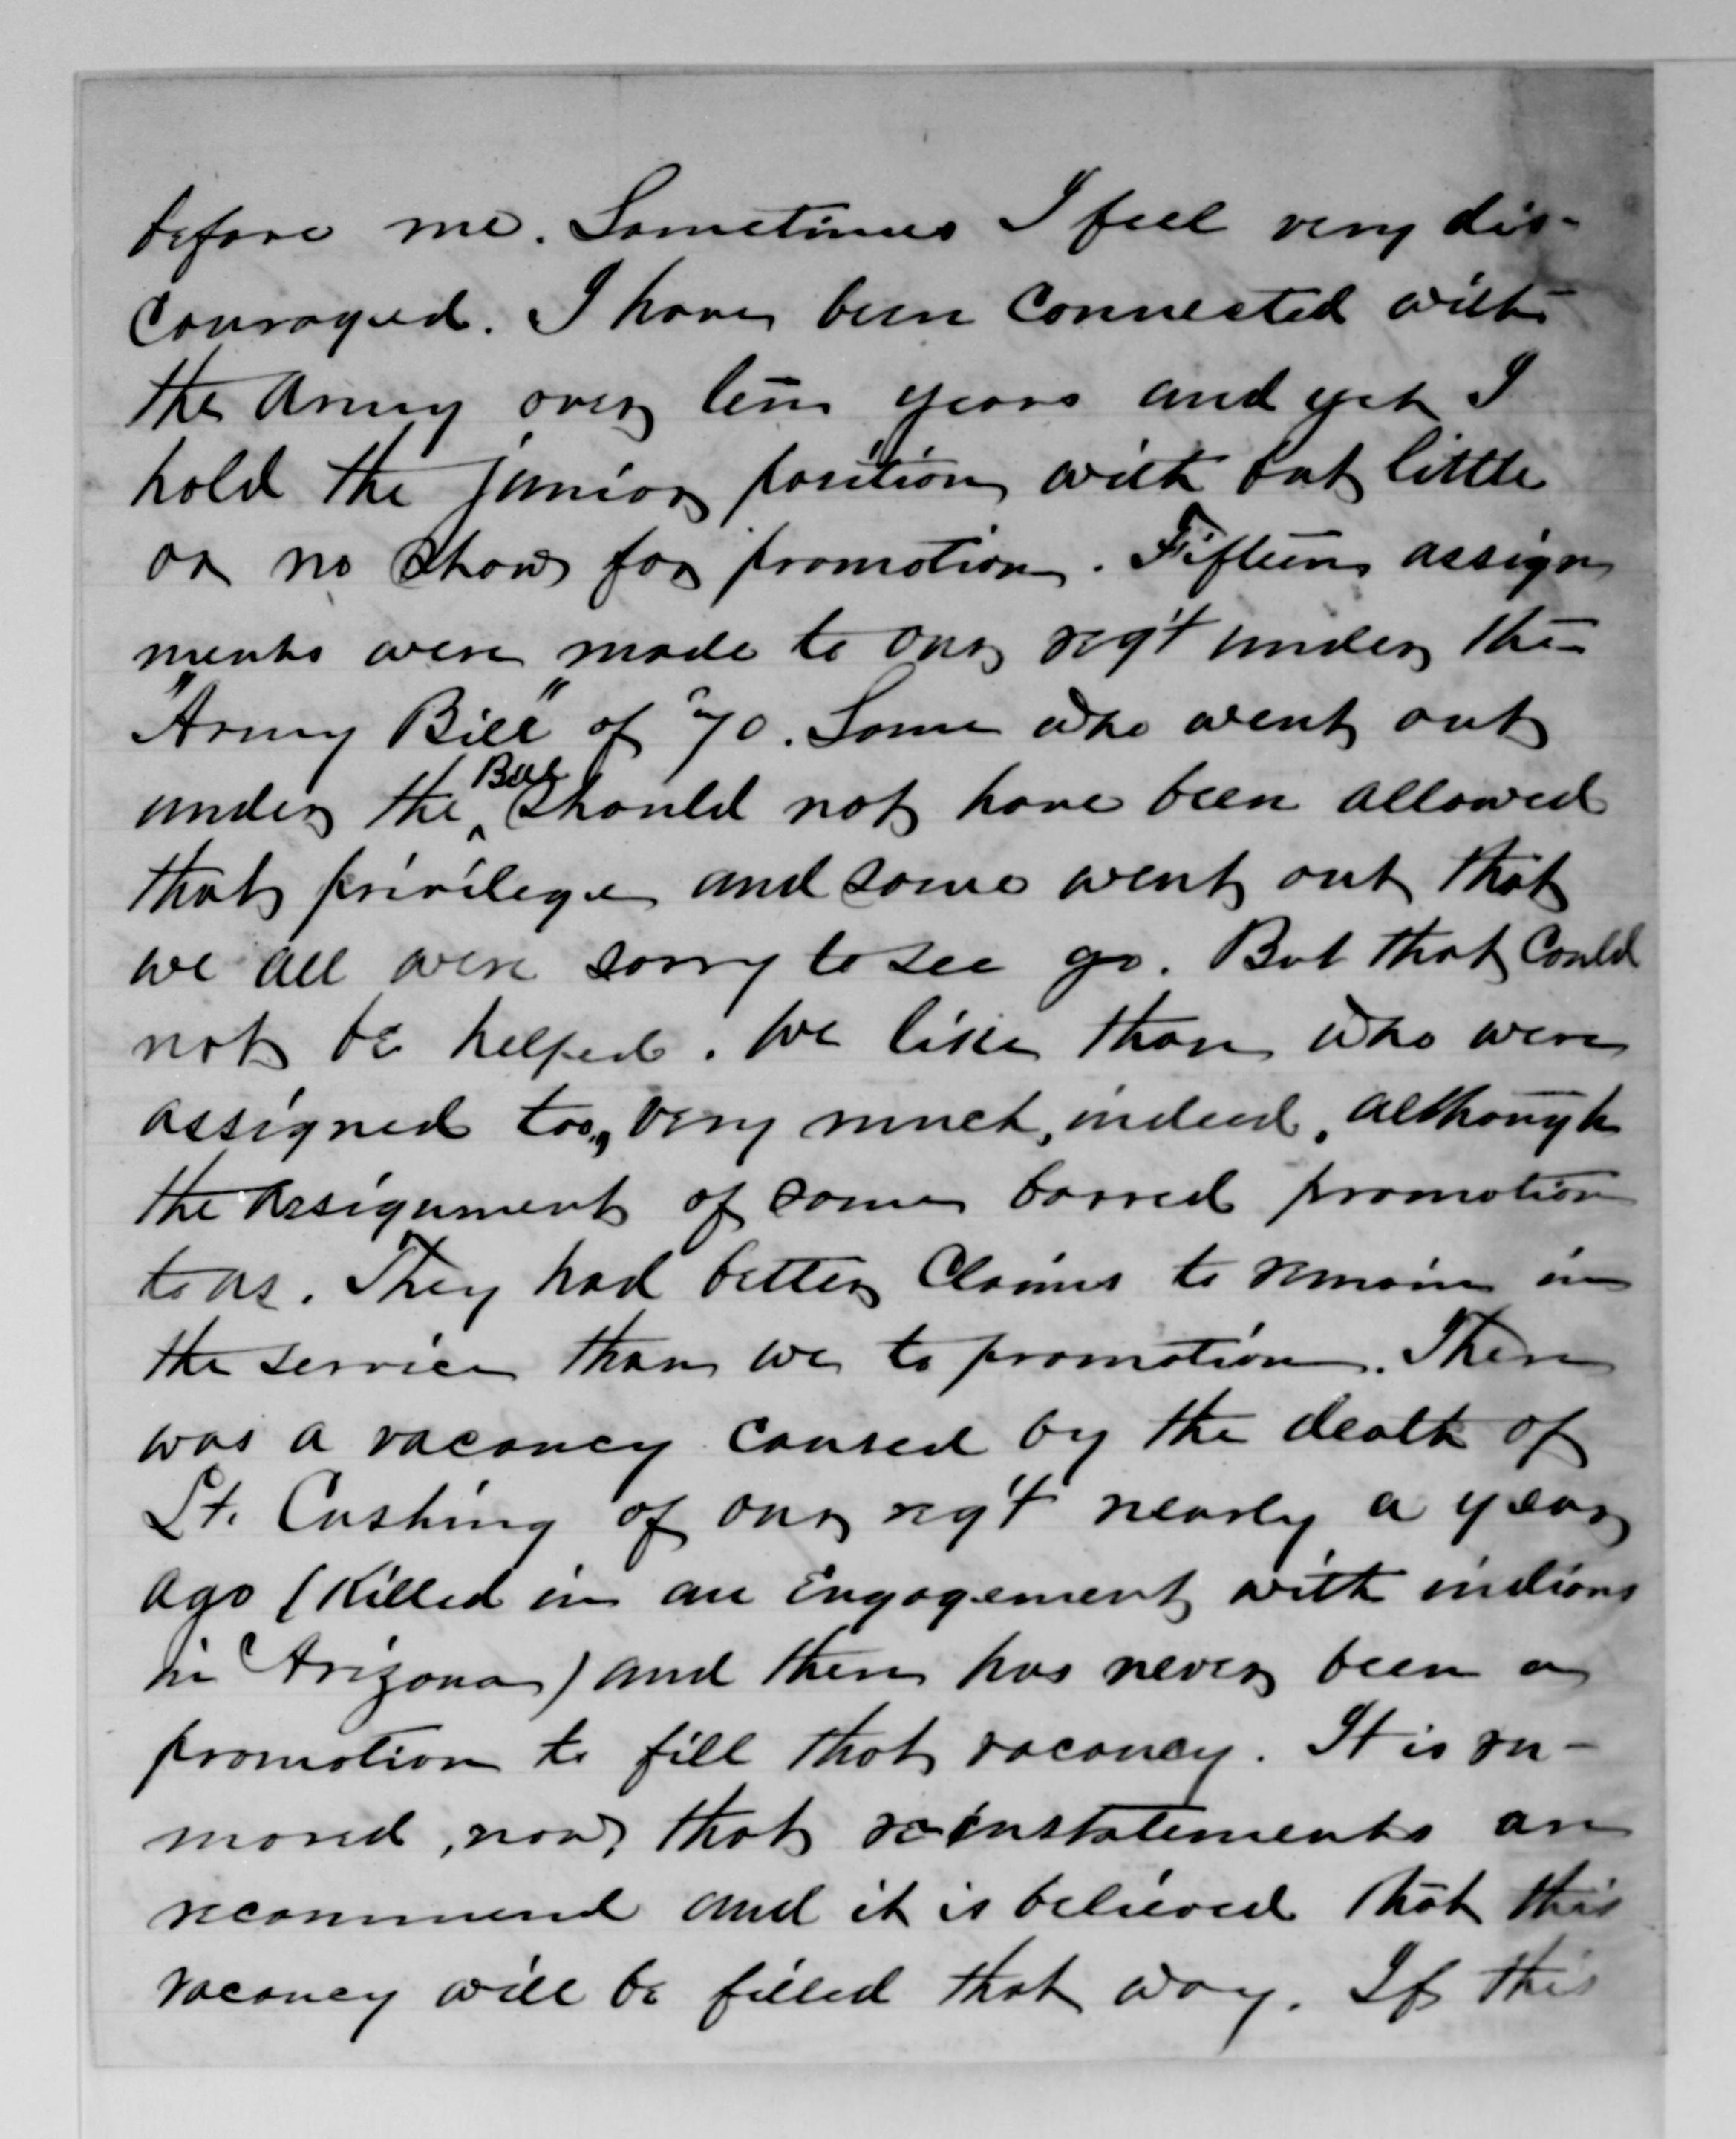 before me. Sometimes I feel very dis-
couraged. I have been connected with
the Army over ten years and yet I
hold the junior position with but little
or no show for promotion. Fifteen assign
ments were made to our reg't under the
"Army Bill" of '70. Some who went out
under the Bill should not have been allowed
that privilege and some went out that
we all were sorry to see go. But that could
not be helped. We like those who were
assigned too, very much, indeed, although
the assignment of some barred promotion
to us. They had better claims to remain in
the service than we to promotion. There
was a vacancy caused by the death of
Lt. Cushing of our reg't nearly a year
ago (Killed in an Engagement with indians
in Arizona) and there has never been a
promotion to fill that vacancy. It is ru-
mored, now, that reinstatements are
recommend and it is believed that this
vacancy will be filled that way. If this